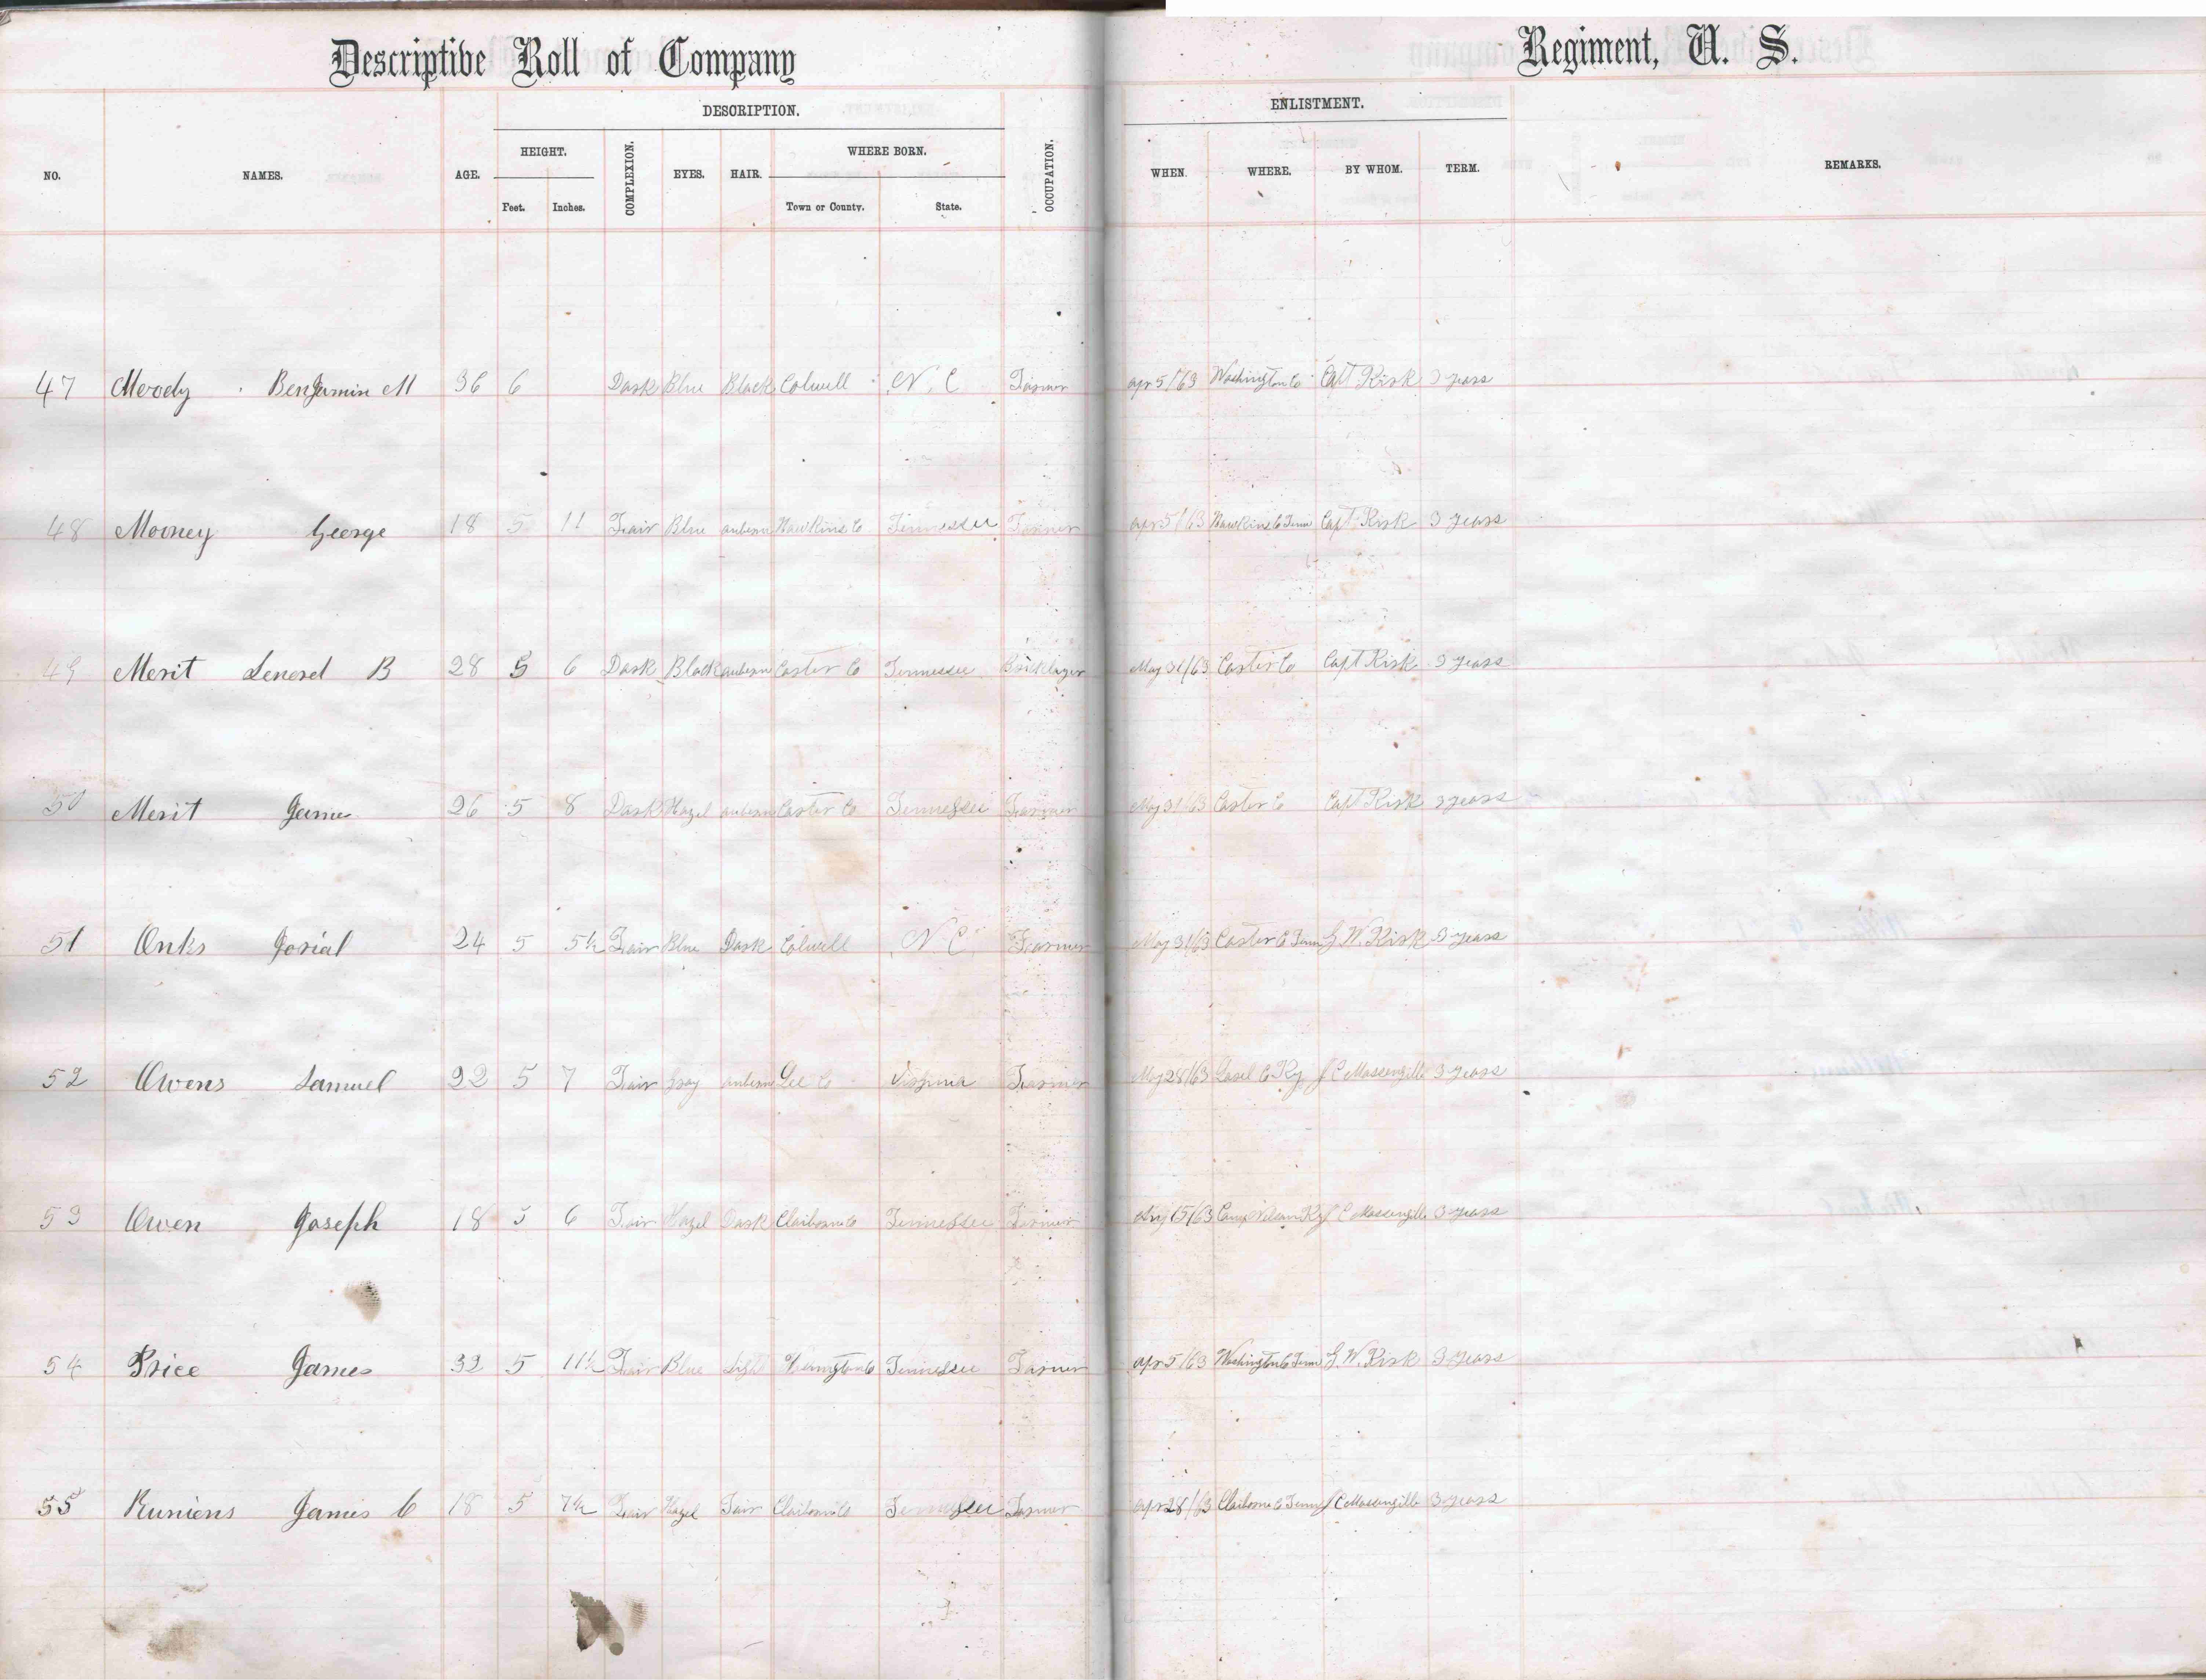 Descriptive Roll of Company Regiment, U. S.
DESCRIPTION. ENLISTMENT.
NO. NAMES. AGE. HEIGHT. COMPLEXION. EYES. HAIR. WHERE BORN. OCCUPATION. WHEN. WHERE. BY WHOM. TERM. REMARKS.
Feet. Inches. Town or County. State.
47 Moody Benjamin M 36 6 Dark Blue Black Colwell N. C Farmer apr 5/63 Washington Co Capt Kirk 3 years
48 Mooney George 18 5 11 Fair Blue auburn Hawkins Co Tennessee Farmer apr 5/63 Hawkins Co Tenn Capt Kirk 3 years
49 Merit Lenord B 28 5 6 Dark Black auburn Carter Co Tennessee Bricklayer May 31/63 Carter Co Capt Kirk 3 years
50 Merit James 26 5 8 Dark Hazel auburn Carter Co Tennessee Farmer May 31/63 Carter Co Capt Kirk 3 years
51 Onks Josiah 24 5 5½ Fair Blue Dark Colwell N. C. Farmer May 31/63 Carter Co Tenn G. W. Kirk 3 years
52 Owens Samuel 22 5 7 Fair Gray auburn Lee Co Virginia Farmer May 28/63 Laurel Co Ky J C Massengill 3 years
53 Owen Joseph 18 5 6 Fair Hazel Dark Claiborne Co Tennessee Farmer Aug 15/63 Camp Nelson Ky J C Massengill 3 years
54 Price James 32 5 11½ Fair Blue Light Tennessee Farmer apr 5/63 Washington Co Tenn G. W. Kirk 3 years
55 Runiens James C 18 5 7½ Fair Hazel Fair Claiborne Co Tennessee Farmer apr 28/63 Claiborne Co Tenn J C Massengill 3 years